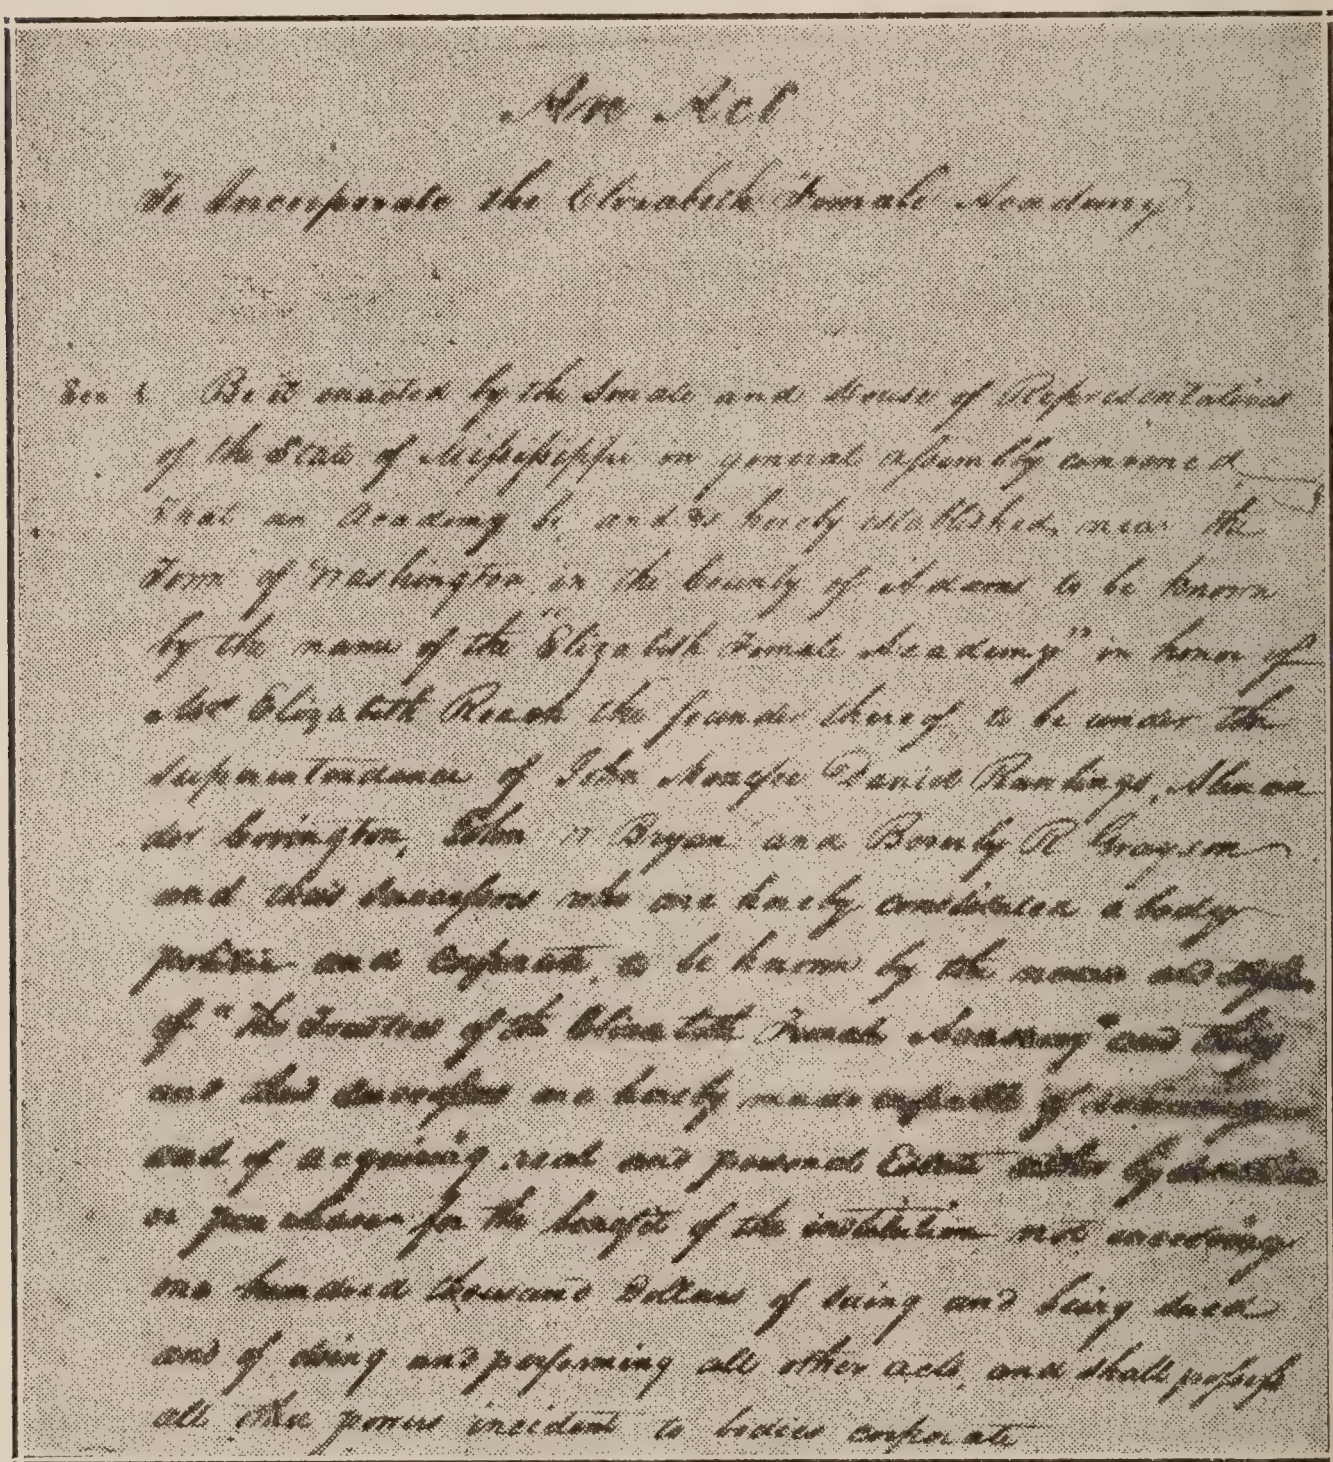 An Act
To Incorporate the Elizabeth Female Academy.
Sec 1. Be it enacted by the Senate and House of Representatives
of the State of Mississippi in general assembly convened
That an Academy be, and is hereby established, near the
Town of Washington in the County of Adams to be known
by the name of the "Elizabeth Female Academy" in honor of
Mrs Elizabeth Roach the founder thereof, to be under the
superintendance of John Menefee Daniel Rawlings, Alexan
der Covington, John W Bryan and Beverly R Grayson
and their Successors who are hereby constituted a body
politic and corporate, to be known by the name and style
of "The Trustees of the Elizabeth Female Academy" and they
and their Successors are hereby made capable of
and of acquiring real and personal Estate either by donation
or purchase for the benefit of the institution not exceeding
one hundred thousand Dollars of suing and being sued
and of doing and performing all other acts, and shall possess
all other powers incident to bodies corporate